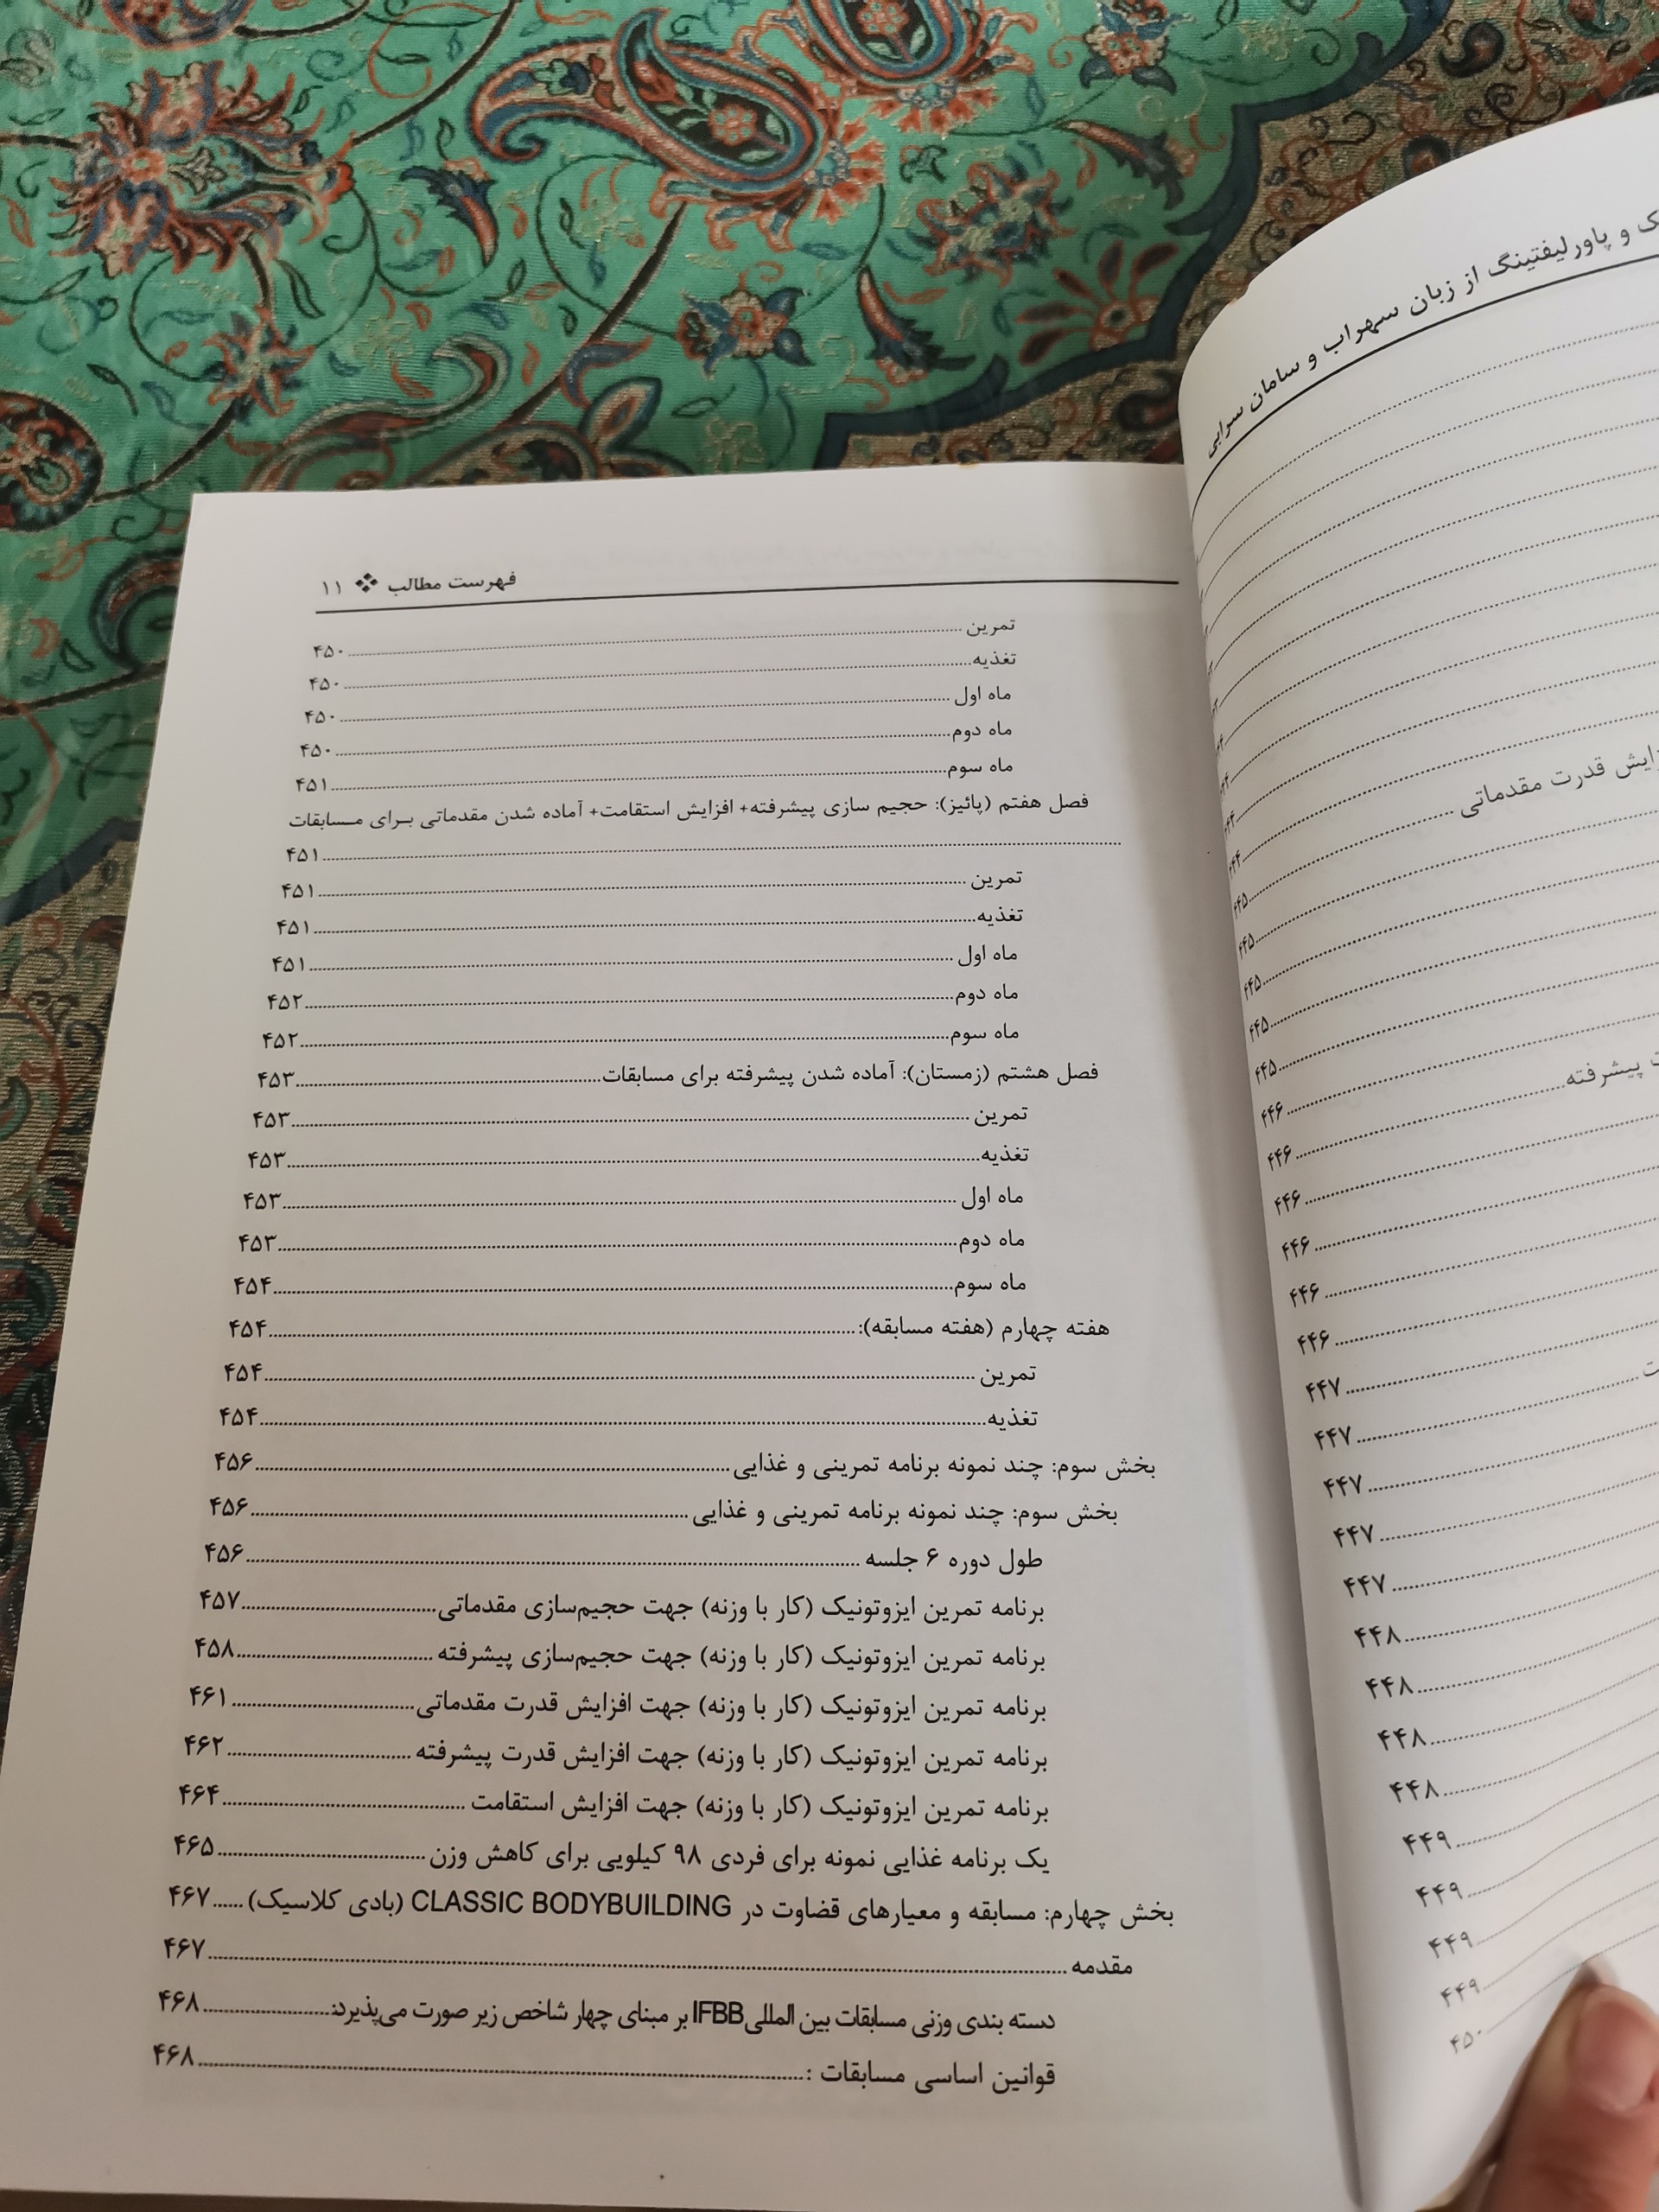 و پاورلیفتینگ از زبان سهراب و سامان سرابی
قدرت مقدماتی
۴۴۴
۴۴۵
۴۴۵
۴۴۵
۴۴۵
۴۴۵
پیشرفته
۴۴۶
۴۴۶
۴۴۶
۴۴۶
۴۴۶
۴۴۶
۴۴۷
۴۴۷
۴۴۷
۴۴۷
۴۴۷
۴۴۸
۴۴۸
۴۴۸
۴۴۸
۴۴۹
۴۴۹
۴۴۹
۴۴۹
۴۵۰
فهرست مطالب ❖ ۱۱
تمرین ........ ۴۵۰
تغذیه ........ ۴۵۰
ماه اول ........ ۴۵۰
ماه دوم ........ ۴۵۰
ماه سوم ........ ۴۵۱
فصل هفتم (پائیز): حجیم سازی پیشرفته+ افزایش استقامت+ آماده شدن مقدماتی برای مسابقات
........ ۴۵۱
تمرین ........ ۴۵۱
تغذیه ........ ۴۵۱
ماه اول ........ ۴۵۱
ماه دوم ........ ۴۵۲
ماه سوم ........ ۴۵۲
فصل هشتم (زمستان): آماده شدن پیشرفته برای مسابقات ........ ۴۵۳
تمرین ........ ۴۵۳
تغذیه ........ ۴۵۳
ماه اول ........ ۴۵۳
ماه دوم ........ ۴۵۳
ماه سوم ........ ۴۵۴
هفته چهارم (هفته مسابقه): ........ ۴۵۴
تمرین ........ ۴۵۴
تغذیه ........ ۴۵۴
بخش سوم: چند نمونه برنامه تمرینی و غذایی ........ ۴۵۶
بخش سوم: چند نمونه برنامه تمرینی و غذایی ........ ۴۵۶
طول دوره ۶ جلسه ........ ۴۵۶
برنامه تمرین ایزوتونیک (کار با وزنه) جهت حجیم‌سازی مقدماتی ........ ۴۵۷
برنامه تمرین ایزوتونیک (کار با وزنه) جهت حجیم‌سازی پیشرفته ........ ۴۵۸
برنامه تمرین ایزوتونیک (کار با وزنه) جهت افزایش قدرت مقدماتی ........ ۴۶۱
برنامه تمرین ایزوتونیک (کار با وزنه) جهت افزایش قدرت پیشرفته ........ ۴۶۲
برنامه تمرین ایزوتونیک (کار با وزنه) جهت افزایش استقامت ........ ۴۶۴
یک برنامه غذایی نمونه برای فردی ۹۸ کیلویی برای کاهش وزن ........ ۴۶۵
بخش چهارم: مسابقه و معیارهای قضاوت در CLASSIC BODYBUILDING (بادی کلاسیک) ...... ۴۶۷
مقدمه ........ ۴۶۷
دسته بندی وزنی مسابقات بین المللیIFBB بر مبنای چهار شاخص زیر صورت می‌پذیرد: ........ ۴۶۸
قوانین اساسی مسابقات : ........ ۴۶۸